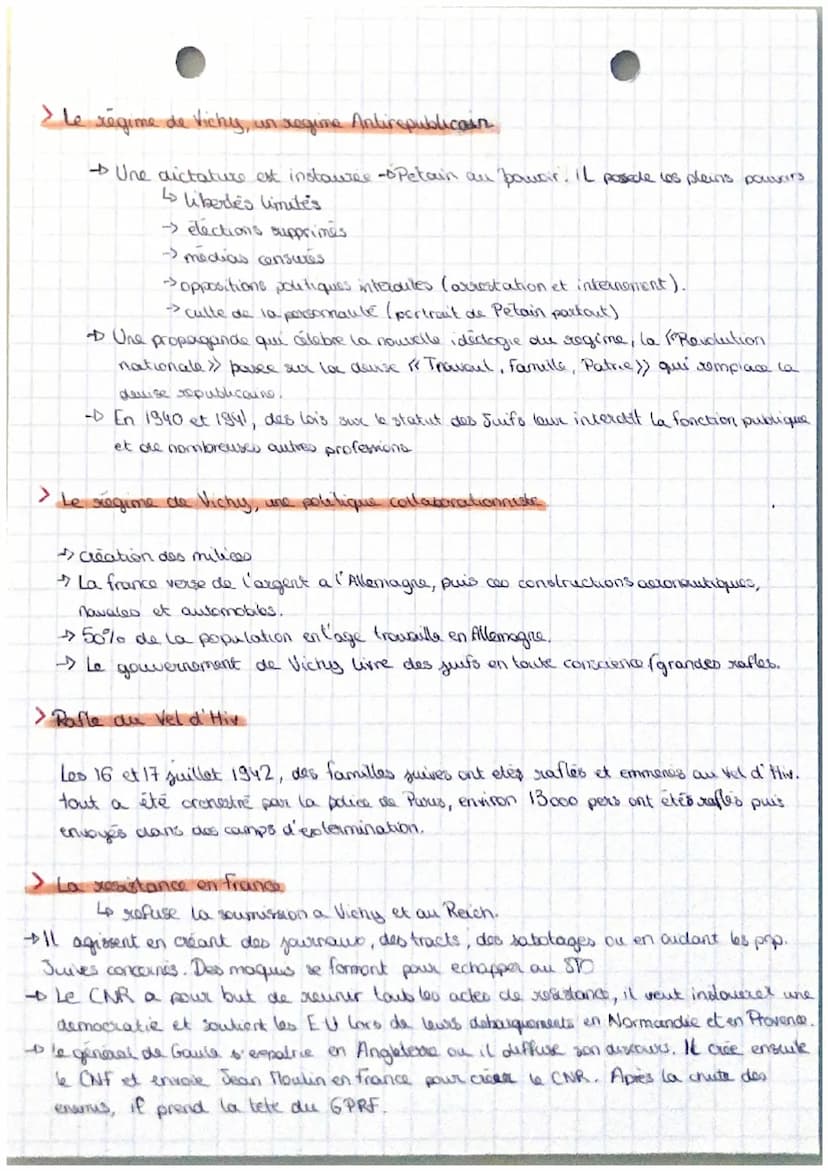 > Le régime de Vichy, un regime Antirepublicain
→ Une dictature est instaurée → Petain au pouvoir. il possede les pleins pouvoirs
↳ libertés limités
→ élections supprimés
→ médias censurés
→ oppositions politiques interdites (arrestation et internement).
→ culte de la personnalité (portrait de Pétain partout)
→ Une propagande qui célebre la nouvelle idéologie du regime, la « Revolution
nationale » basee sur la devise « Travail, Famille, Patrie » qui remplace la
devise republicaine.
→ En 1940 et 1941, des lois sur le statut des Juifs leur interdit la fonction publique
et de nombreuses autres professions
> Le régime de Vichy, une politique collaborationniste
→ création des milices
→ La france verse de l'argent a l'Allemagne, puis ces constructions aeronautiques,
navales et automobiles.
→ 50% de la population en l'age travaille en Allemagne.
→ Le gouvernement de Vichy livre des juifs en toute conscience (grandes rafles.
> Rafle du Vel d'Hiv
Les 16 et 17 juillet 1942, des familles juives ont etés raflés et emmenés au Vel d'Hiv.
tout a été orchestré par la police de Paris, environ 13000 pers ont étés raflés puis
envoyés dans des camps d'extermination.
> La resistance en france
↳ refuse la soumission a Vichy et au Reich.
→ Il agissent en créant des journaux, des tracts, des sabotages ou en aidant les pop.
Juives concernés. Des maquis se forment pour echapper au STO
→ Le CNR a pour but de reunir touts les actes de resistance, il veut instaurer une
democratie et soutient les EU lors de leurs debarquements en Normandie et en Provence.
→ le général de Gaulle s'expatrie en Angleterre ou il diffuse son discours. Il crée ensuite
le CNF et envoie Jean Moulin en france pour créer le CNR. Après la chute des
enemis, il prend la tete du GPRF.